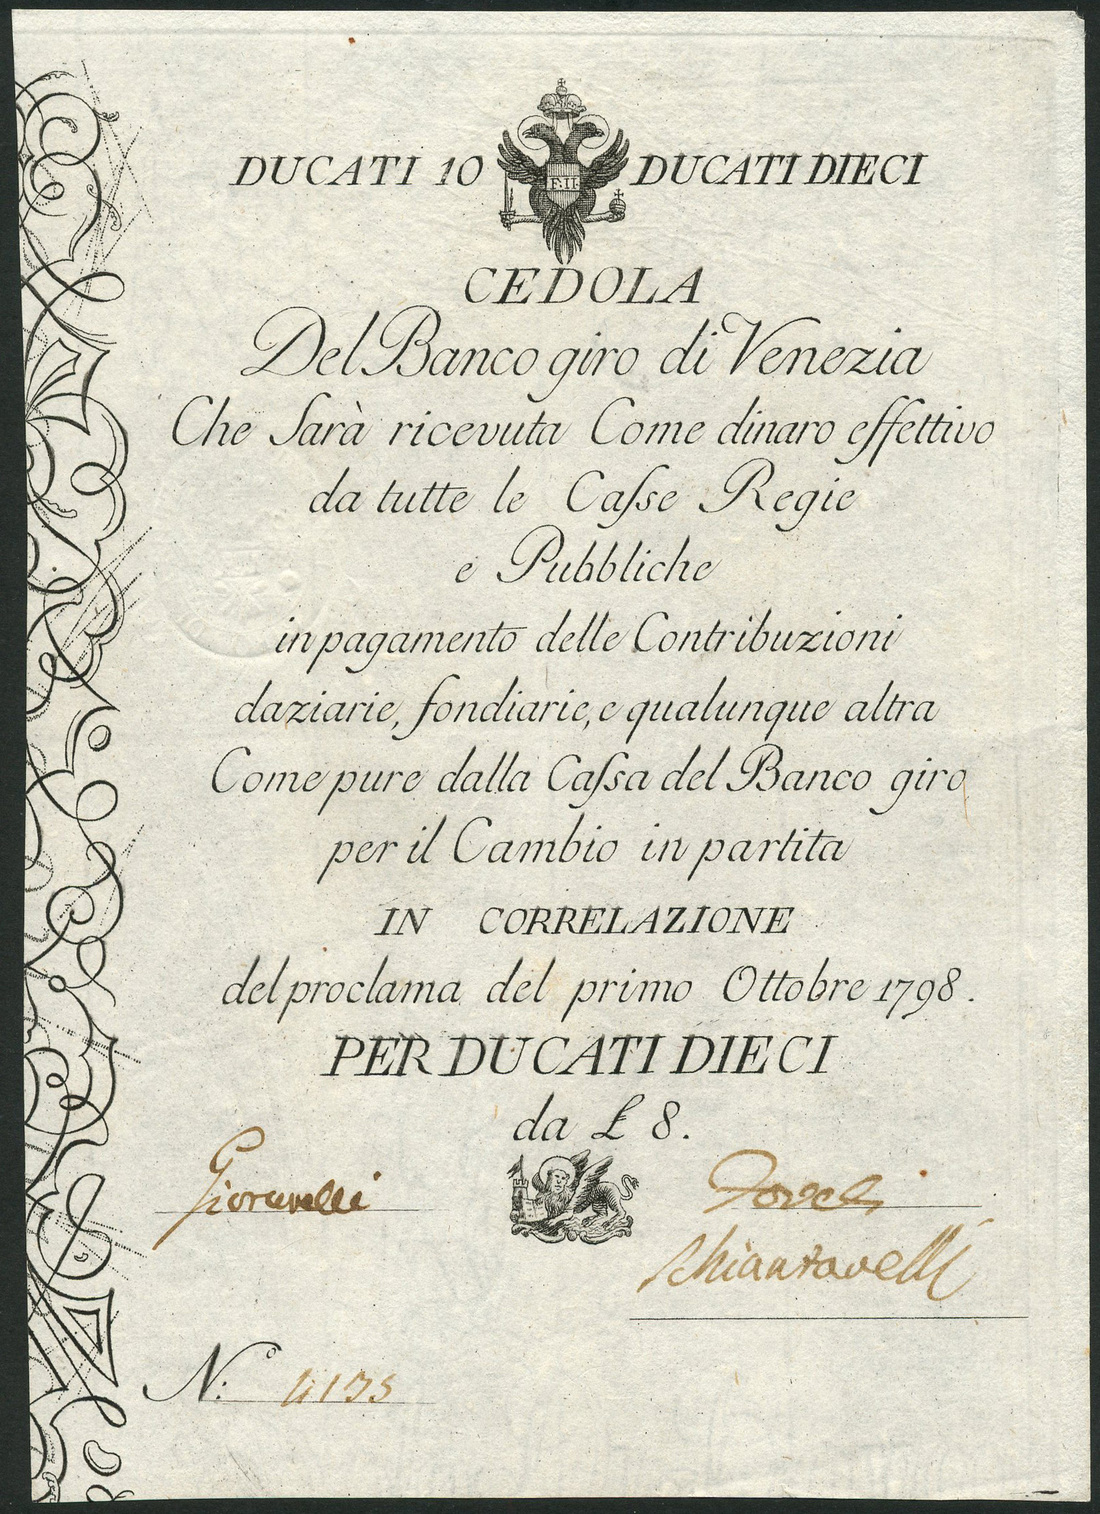 DUCATI 10 DUCATI DIECI
F.II.
CEDOLA
Del Banco giro di Venezia
Che Sarà ricevuta Come dinaro effettivo
da tutte le Caſse Regie
e Pubbliche
in pagamento delle Contribuzioni
daziarie, fondiarie, e qualunque altra
Come pure dalla Caſsa del Banco giro
per il Cambio in partita
IN CORRELAZIONE
del proclama del primo Ottobre 1798.
PER DUCATI DIECI
da £ 8.
N:o